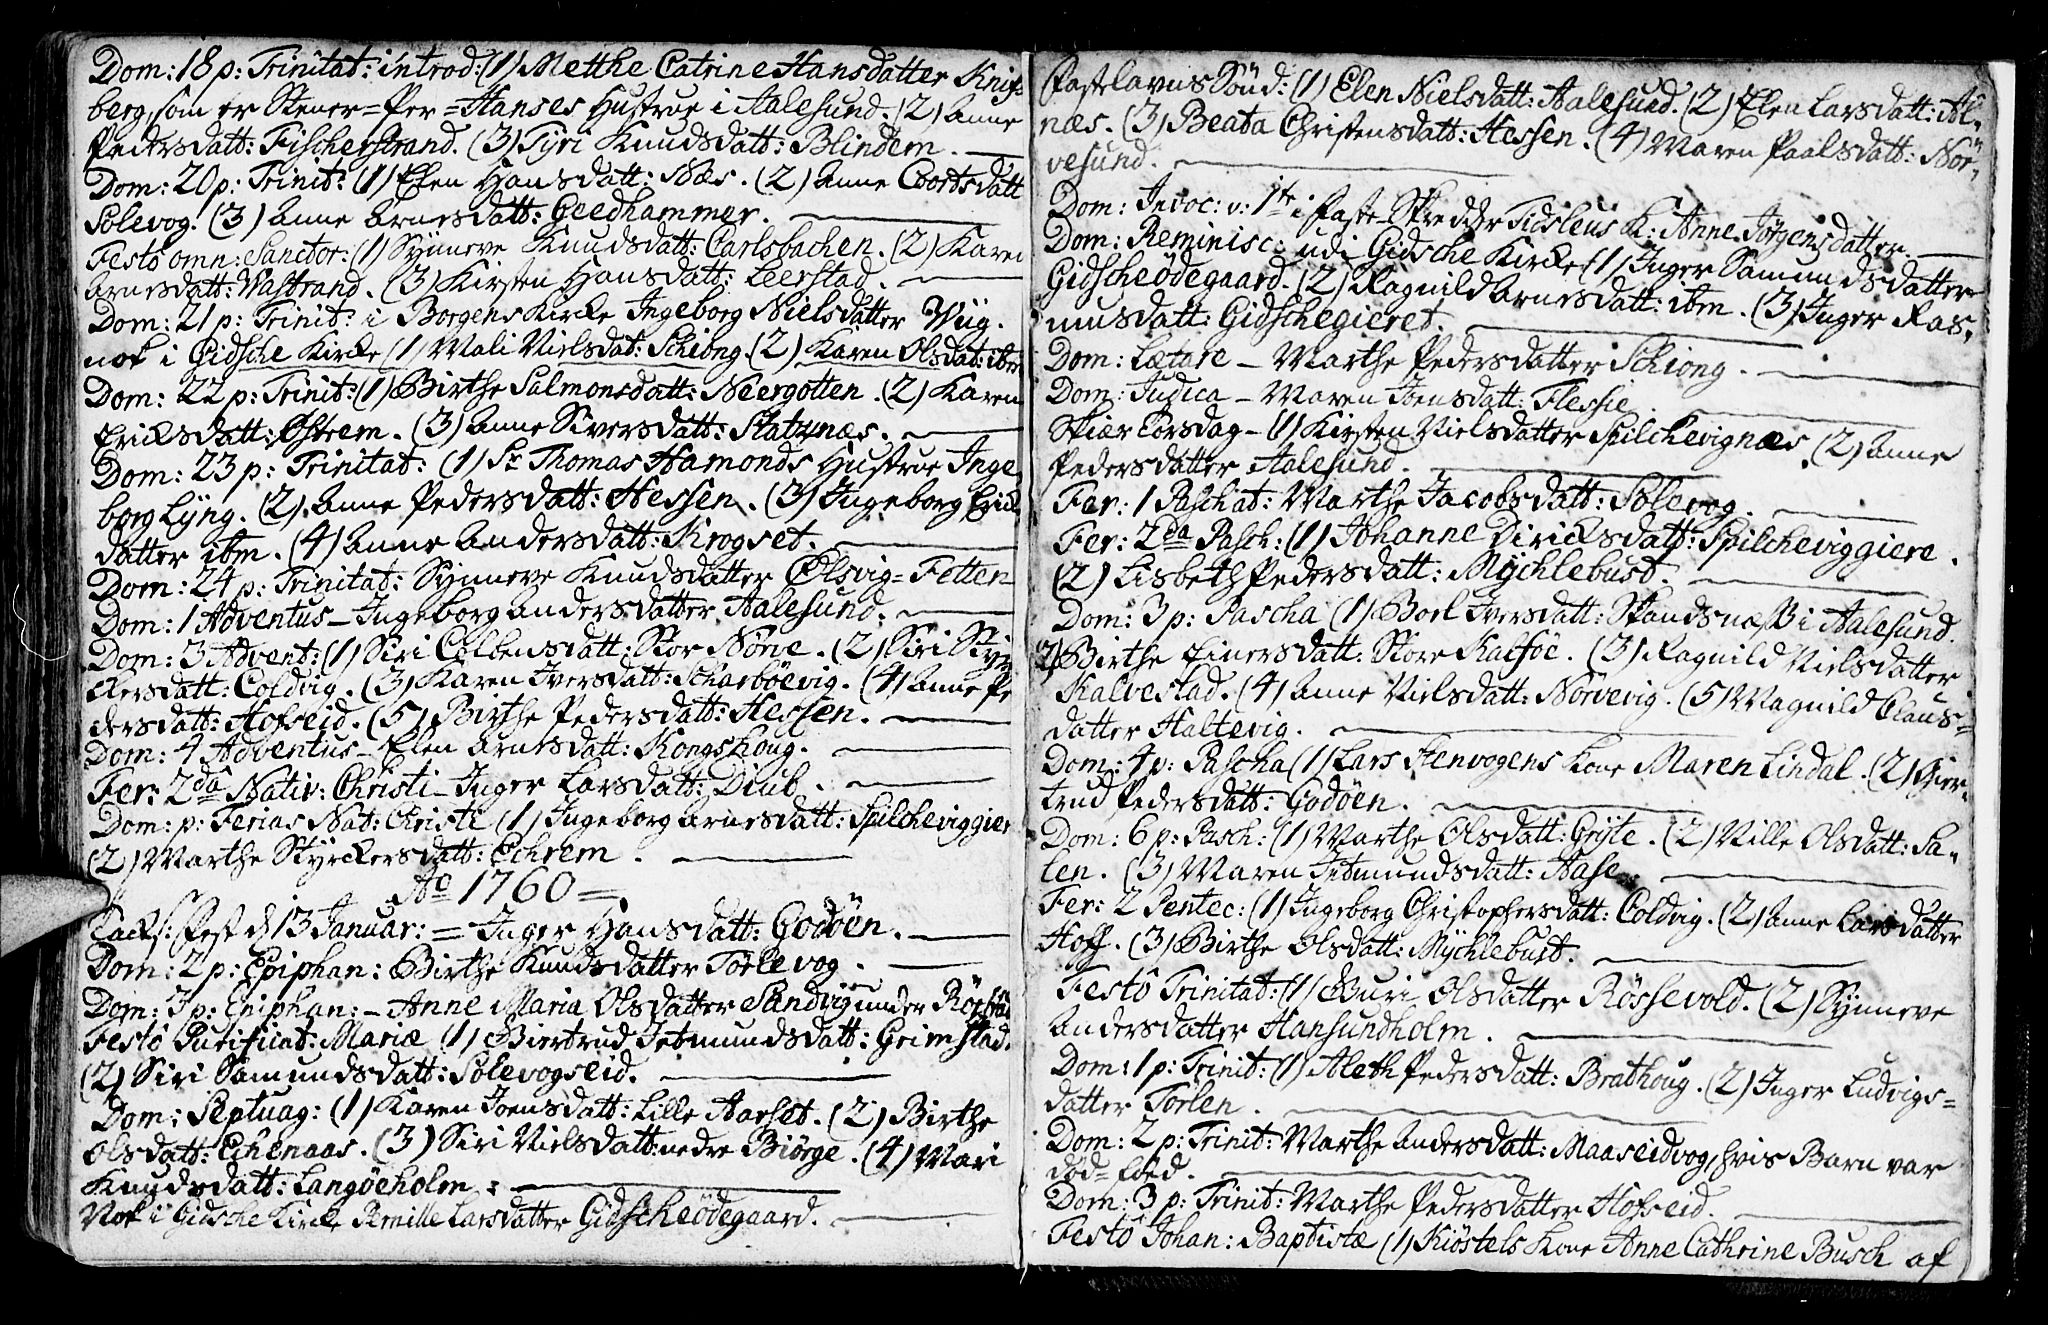 Dom: 18 p: Trinitat: introd: (1) Metthe Catrine Hansdatter Knips
berg, som er Stener=Per=Hanses Hustrue i Aalesund. (2) Anne
Pedersdatt: Fischerstrand. (3) Tyri Knudsdatt: Blindem.
Dom: 20 p: Trinit: (1) Elen Hansdatt: Næs. (2) Anne Coortsdatt
Solevog. (3) Anne Arnesdatt: Geedhammer.
Festo omn: Sanctor: (1) Synneve Knudsdatt: Carlsbachen. (2) Karen
Arnesdatt: Wastrand. (3) Kirsten Hansdatt: Leerstad.
Dom: 21 p: Trinit: i Borgens Kircke Ingeborg Nielsdatter Wiig.
nok i Gidsche Kircke (1) Mali Nielsdat: Schiong. (2) Karen Olsdat: ibm
Dom: 22 p: Trinit: (1) Birthe Salmonsdatt: Neergotten. (2) Karen
Ericksdatt: Østrem. (3) Anne Siversdatt: Slatnæs.
Dom: 23 p: Trinitat: (1) Sr Thomas Hamonds Hustrue Inge
borg Lyng. (2) Anne Pedersdatt: Hessen. (3) Ingeborg Erick
datter ibm. (4) Anne Andersdatt: Krogset.
Dom: 24 p: Trinitat: Synneve Knudsdatter Olsvig=Fetten
Dom: 1 Adventus - Ingeborg Andersdatter Aalesund.
Dom: 3 Advent: (1) Siri Colbensdatt: Stor Nørre. (2) Siri Styr
kersdatt: Coldvig. (3) Karen Iversdatt: Scharbøevig. (4) Anne Pe
dersdatt: Hofseid. (5) Birthe Pedersdatt: Hessen.
Dom: 4 Adventus - Elen Arnesdatt: Kongshoug.
Fer: 2da Nativ: Christi - Inger Larsdatt: Diub.
Dom: p: Ferias Nat: Christi (1) Ingeborg Arnesdatt: Spilcheviggier
(2) Marthe Styrckersdatt: Echrem.
Ao 1760
Tacks: Fest d 13 Januar: = Inger Hansdatt: Godøen.
Dom: 2 p: Epiphan: Birthe Knudsdatter Torlevog.
Dom: 3 p: Epiphan: - Anne Maria Olsdatter Sandvig under
Festo Purificat: Mariæ (1) Giertrud Jetmundsdatt: Grimstad.
(2) Siri Samundsdatt: Solevogseid.
Dom: Septuag: (1) Karen Joensdatt: Lille Aarset. (2) Birthe
Olsdatt: Echenaas. (3) Siri Nielsdatt: nedre Biørge. (4) Mari
Knudsdatt: Langøeholm:
Nok i Gidsche Kircke Pernille Larsdatter Gidscheødegaard.
Fastelavns Sönd: (1) Elen Nielsdatt: Aalesund. (2) Elen Larsdatt: Al-
næs. (3) Beata Christensdatt: Hessen. (4) Maren Paalsdatt: Nör-
vesund.
Dom: Invoc: v: 1te i Faste - Skredder Tidsleus K: Anne Jörgensdatter.
Dom: Reminisc: udi Gidsche Kircke (1) Inger Samundsdatter
Gidscheødegaard. (2) Ragnild Arnesdatt: ibm. (3) Inger Ras-
musdatt: Gidschegieret.
Dom: Lætare - Marthe Pedersdatter Schiong.
Dom: Judica - Maren Joensdatt: Flessie.
Skiær Torsdag - (1) Kirsten Nielsdatter Spilchevignæs. (2) Anne
Pedersdatter Aalesund.
Fer: 1 Paschat: Marthe Jacobsdatt: Solevog.
Fer: 2da Pasch: (1) Johanne Diricksdatt: Spilcheviggiere.
(2) Lisbeth Pedersdatt: Mychlebust.
Dom: 3 p: Pascha (1) Boel Iversdatt: Standsnæß i Aalesund.
2) Birthe Einersdatt: Store Kalføe. (3) Ragnild Nielsdatter
Kalvestad. (4) Anne Nielsdatt: Nörvevig. (5) Magnild Claus=
datter Haltevig.
Dom: 4 p: Pascha (1) Lars Stenvogens Kone Maren Lindal. (2) Gier-
trud Pedersdatt: Godøen.
Dom: 6 p: Pasch: (1) Marthe Olsdatt: Gryte. (2) Nille Olsdatt: Sa-
len. (3) Maren Jetmundsdatt: Aase.
Fer: 2 Pentec: (1) Ingeborg Christophersdatt: Coldvig. (2) Anne Larsdatter
Hoff. (3) Birthe Olsdatt: Mychlebust.
Festo Trinitat: (1) Guri Olsdatter Røssevold. (2) Synneve
Andersdatter Hansundholm.
Dom: 1 p: Trinit: (1) Aleth Pedersdatt: Brathoug. (2) Inger Ludvigs=
datter Torlen.
Dom: 2 p: Trinit: Marthe Andersdatt: Maaseidvog, hvis Barn var
död=föed.
Dom: 3 p: Trinit: Marthe Pedersdatter Hofseid.
Festo Johan: Baptistæ (1) Kiöstels Kone Anne Cathrine Busch af